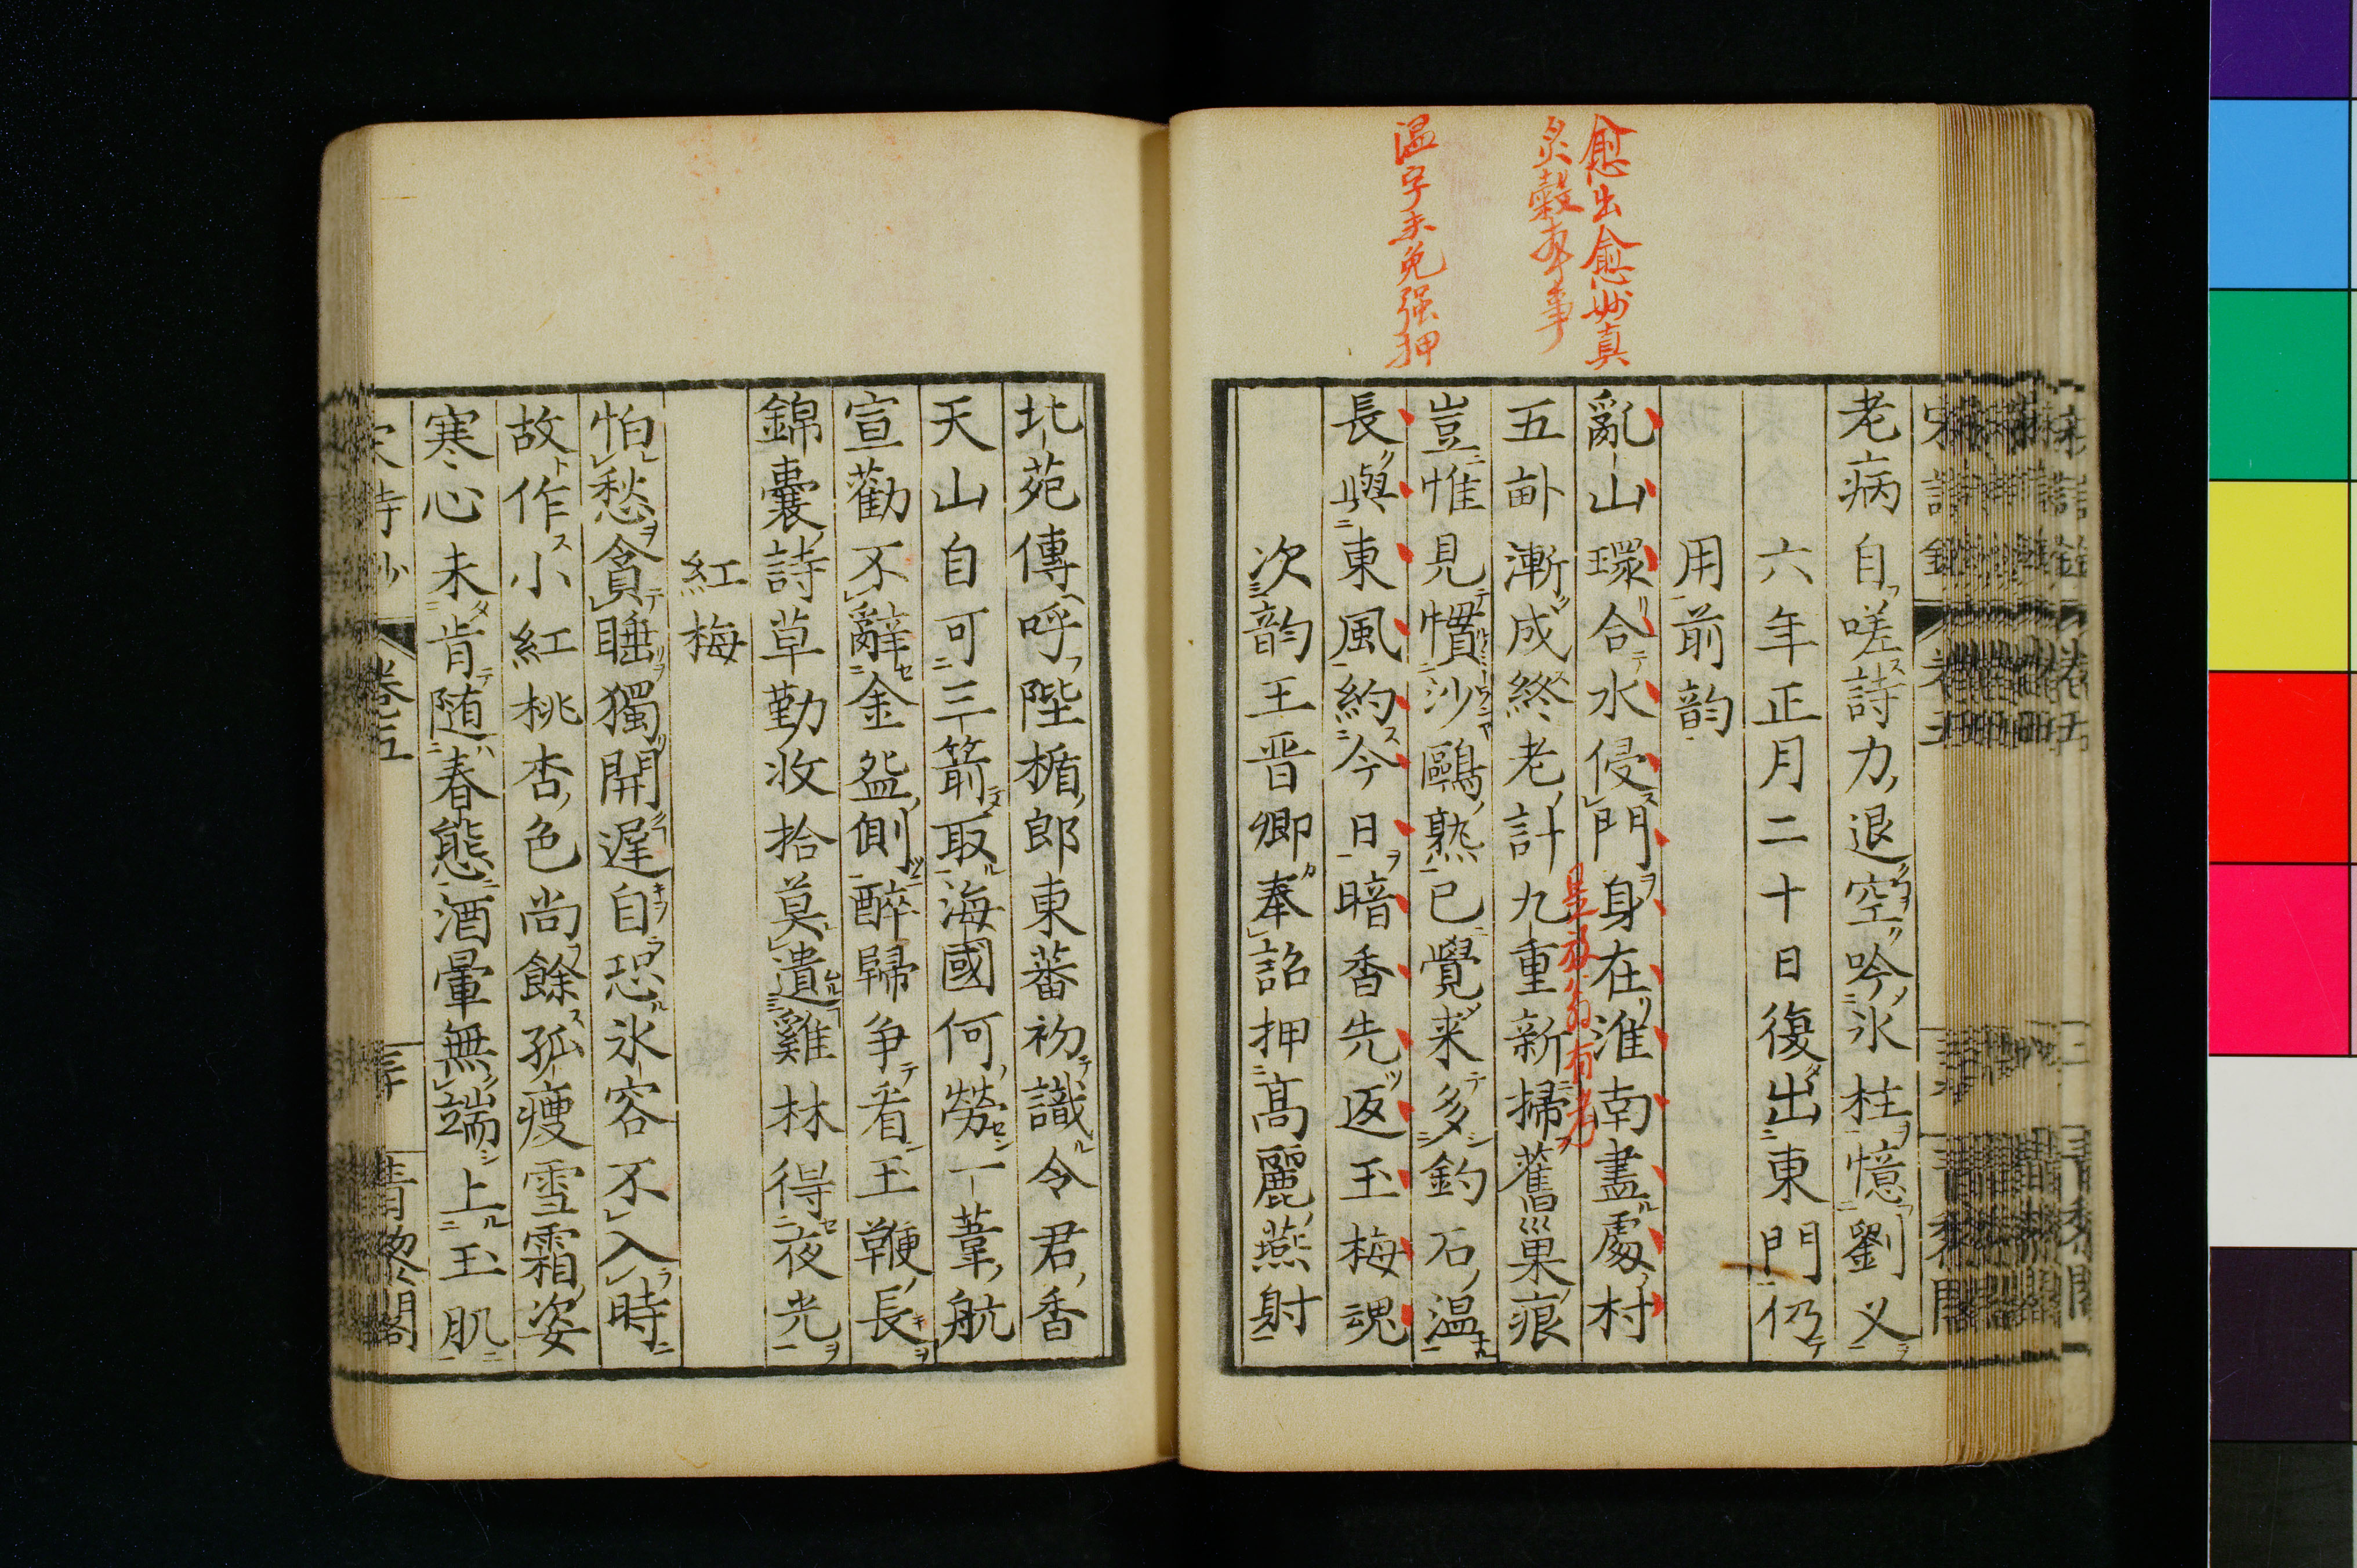 愈出愈妙真
炙轂事事
温字未免强押
老病自嗟詩力退空吟氷柱憶劉义
六年正月二十日復出東門仍
用前韵
亂山環合水侵門身在淮南盡處村
五畝漸成終老計九重新掃舊巢痕
豈惟見慣沙鷗熟已覺来多釣石温
長與東風約今日暗香先返玉梅魂
次韵王晋卿奉詔押髙麗燕射
北苑傳呼陛楯郎東蕃初識令君香
天山自可三箭取海國何勞一葦航
宣勸不辭金盌側醉歸争看玉鞭長
錦囊詩草勤收拾莫遣雞林得夜光
紅梅
怕愁貪睡獨開遲自恐氷容不入時
故作小紅桃杏色尚餘孤瘦雪霜姿
寒心未肯随春態酒暈無端上玉肌
卷五